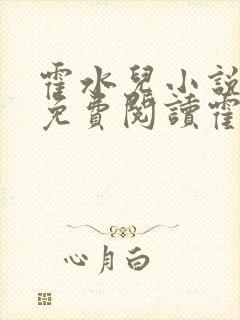 霍水兒小說
免費閱讀霍
心月白